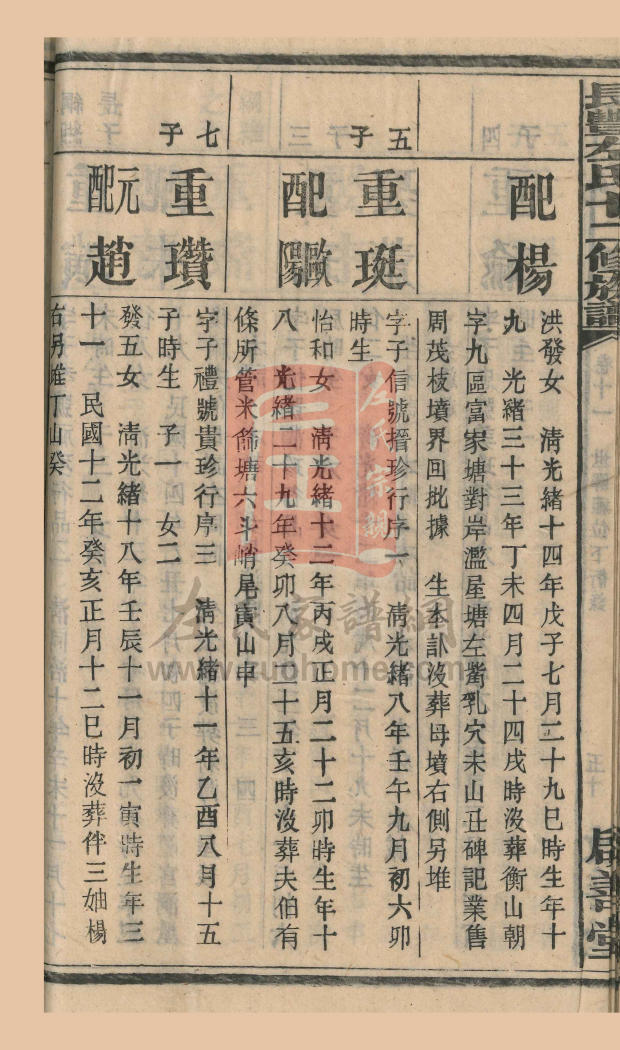 長豐左氏十二修族譜
卷十一
五十
配楊
洪發女 清光緒十四年戊子七月二十九巳時生年十
九 光緒三十三年丁未四月二十四戌時沒葬衡山朝
字九區富家塘對岸濫星塘左觜乳穴未山丑碑記業售
周茂枝墳界回批據 生李訃沒葬母墳右側另堆
五子
重珽
字子信號搢珍行序一 清光緒八年壬午九月初六卯
時生
配歐陽
怡和女 清光緒十二年丙戌正月二十二卯時生年十
八 光緒二十九年癸卯八月二十五亥時沒葬夫伯有
條所管米篩塘六斗峭尾寅山申
七子
重瓚
字子禮號貴珍行序三 清光緒十一年乙酉八月十五
子時生 子一 女二
元配趙
發五女 清光緒十八年壬辰十一月初一寅時生年三
十一 民國十二年癸亥正月十二巳時沒葬伴三妯楊
右另堆丁山癸
左氏家譜網
www.zuohome.com